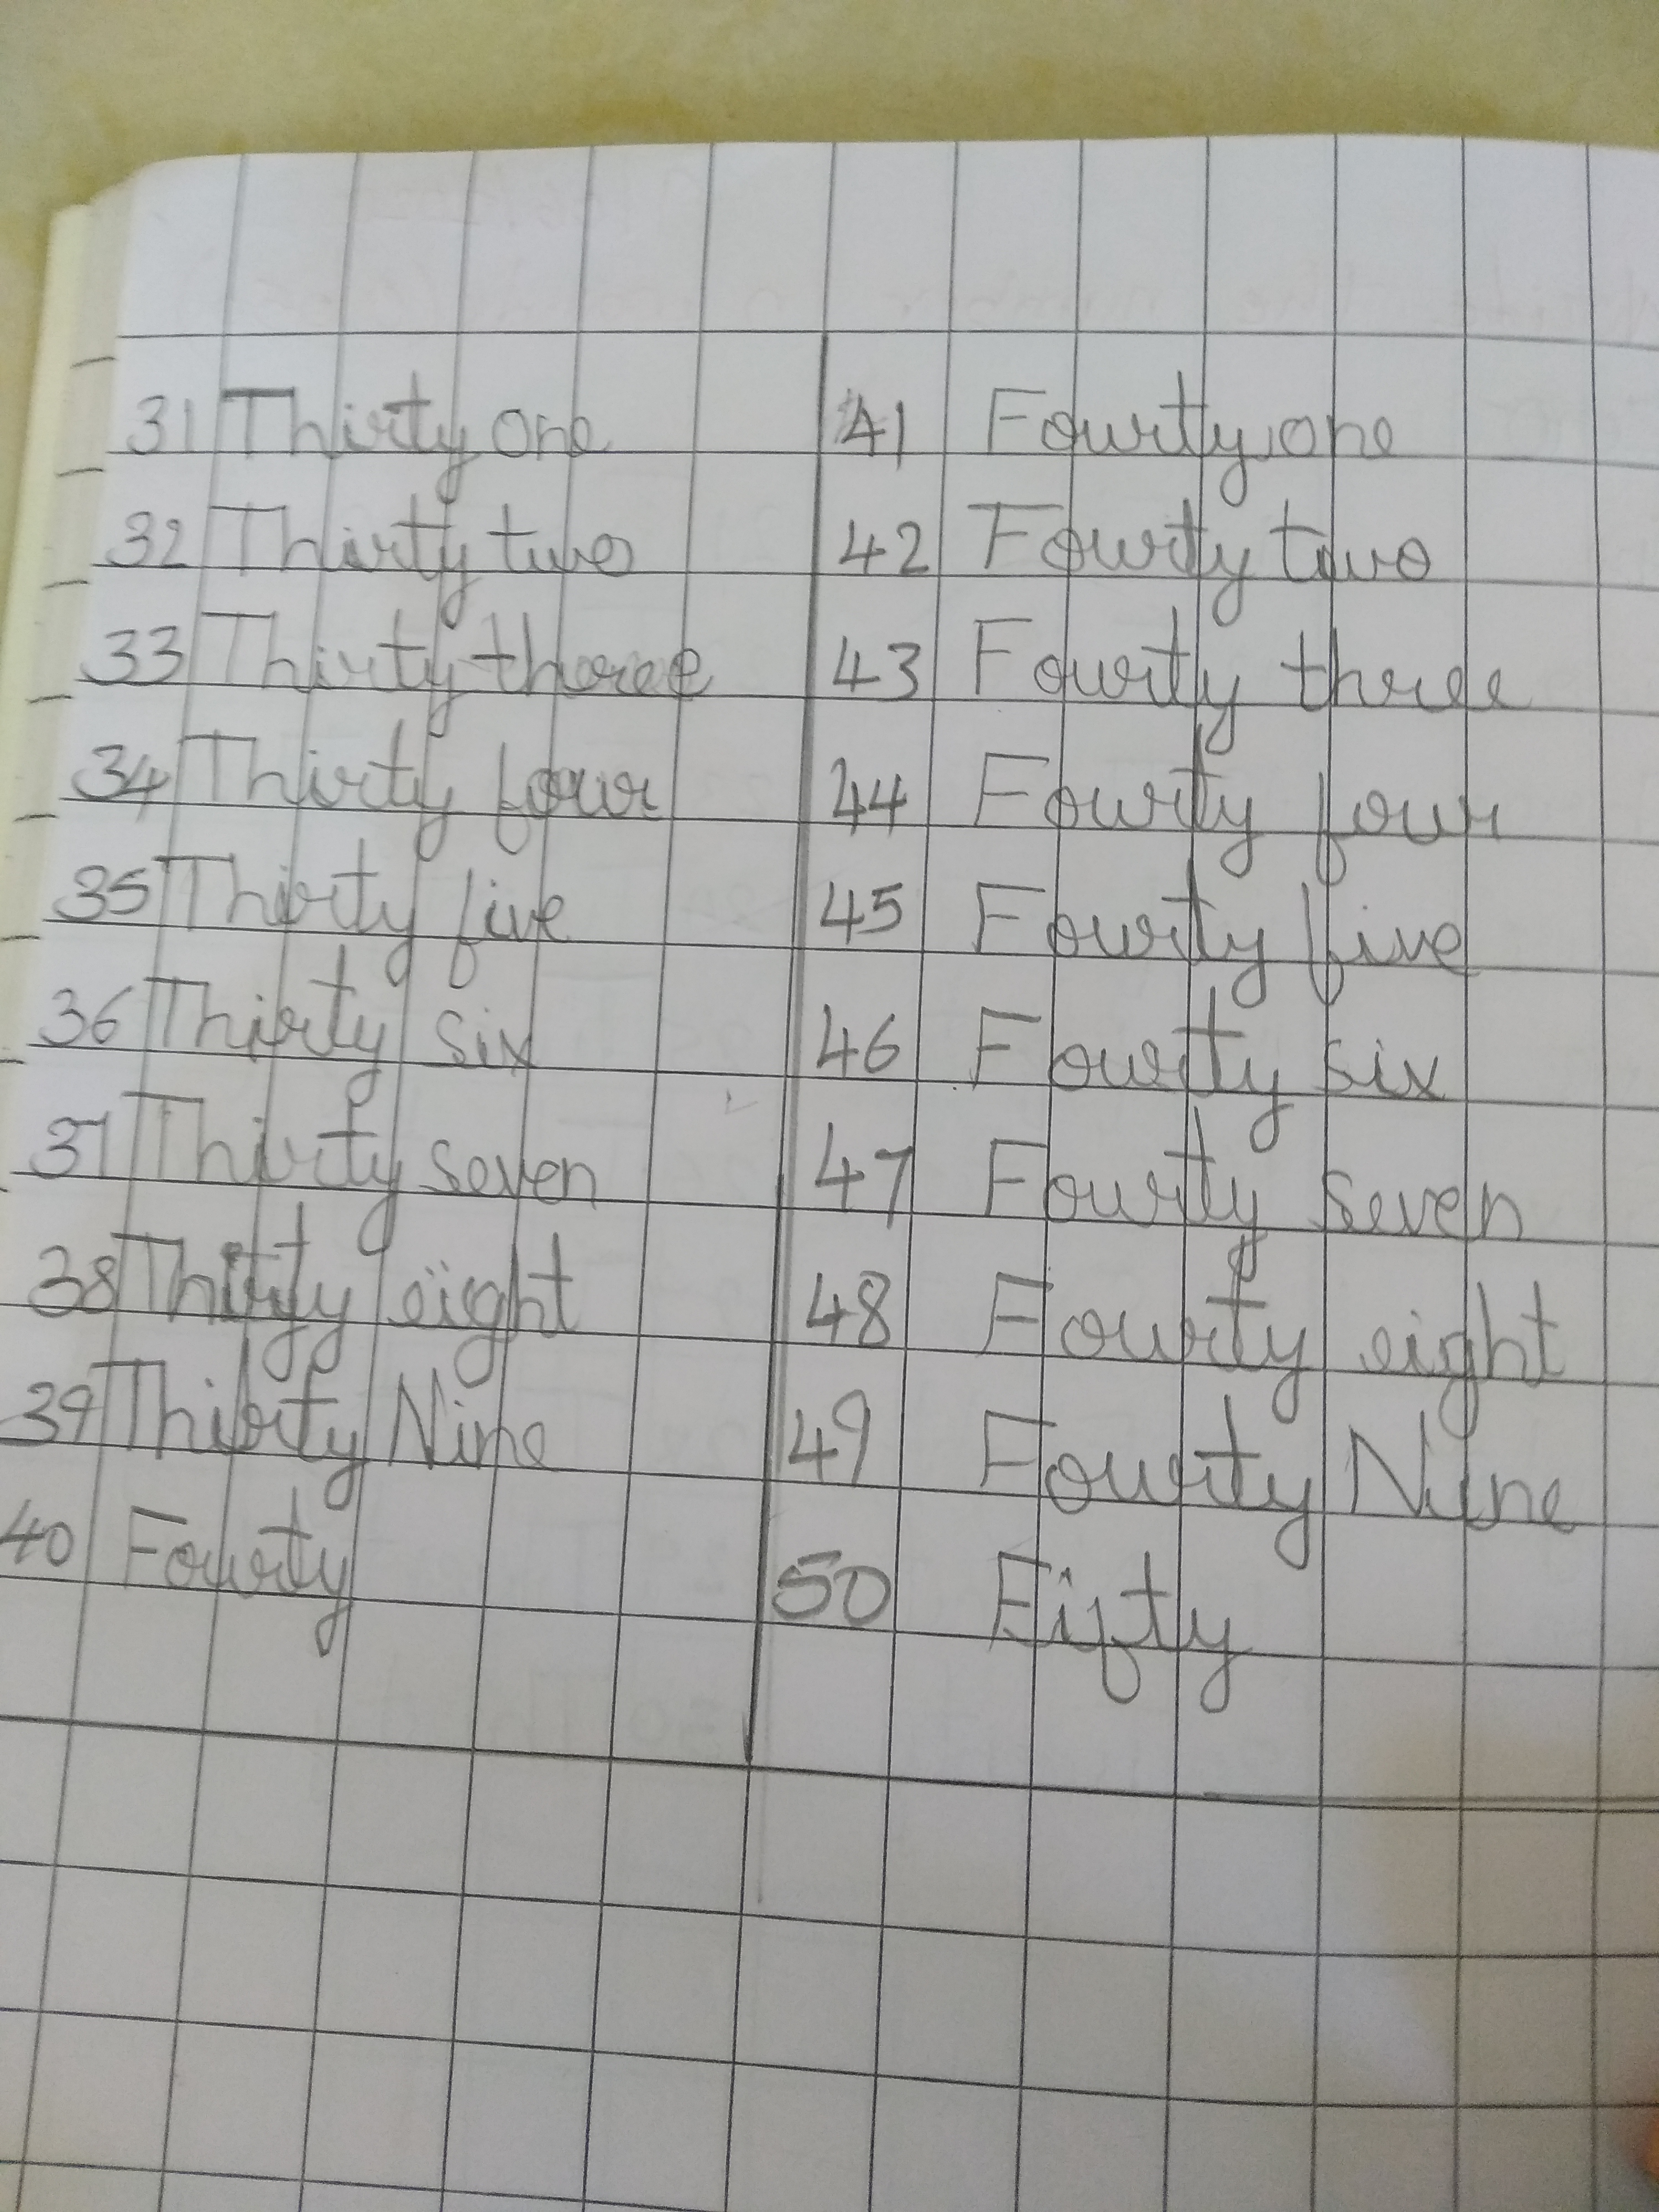 31 Thirty one
32 Thirty two
33 Thirty three
34 Thirty four
35 Thirty five
36 Thirty six
37 Thirty seven
38 Thirty eight
39 Thirty Nine
40 Fourty
41 Fourty one
42 Fourty two
43 Fourty three
44 Fourty four
45 Fourty five
46 Fourty six
47 Fourty seven
48 Fourty eight
49 Fourty Nine
50 Fifty